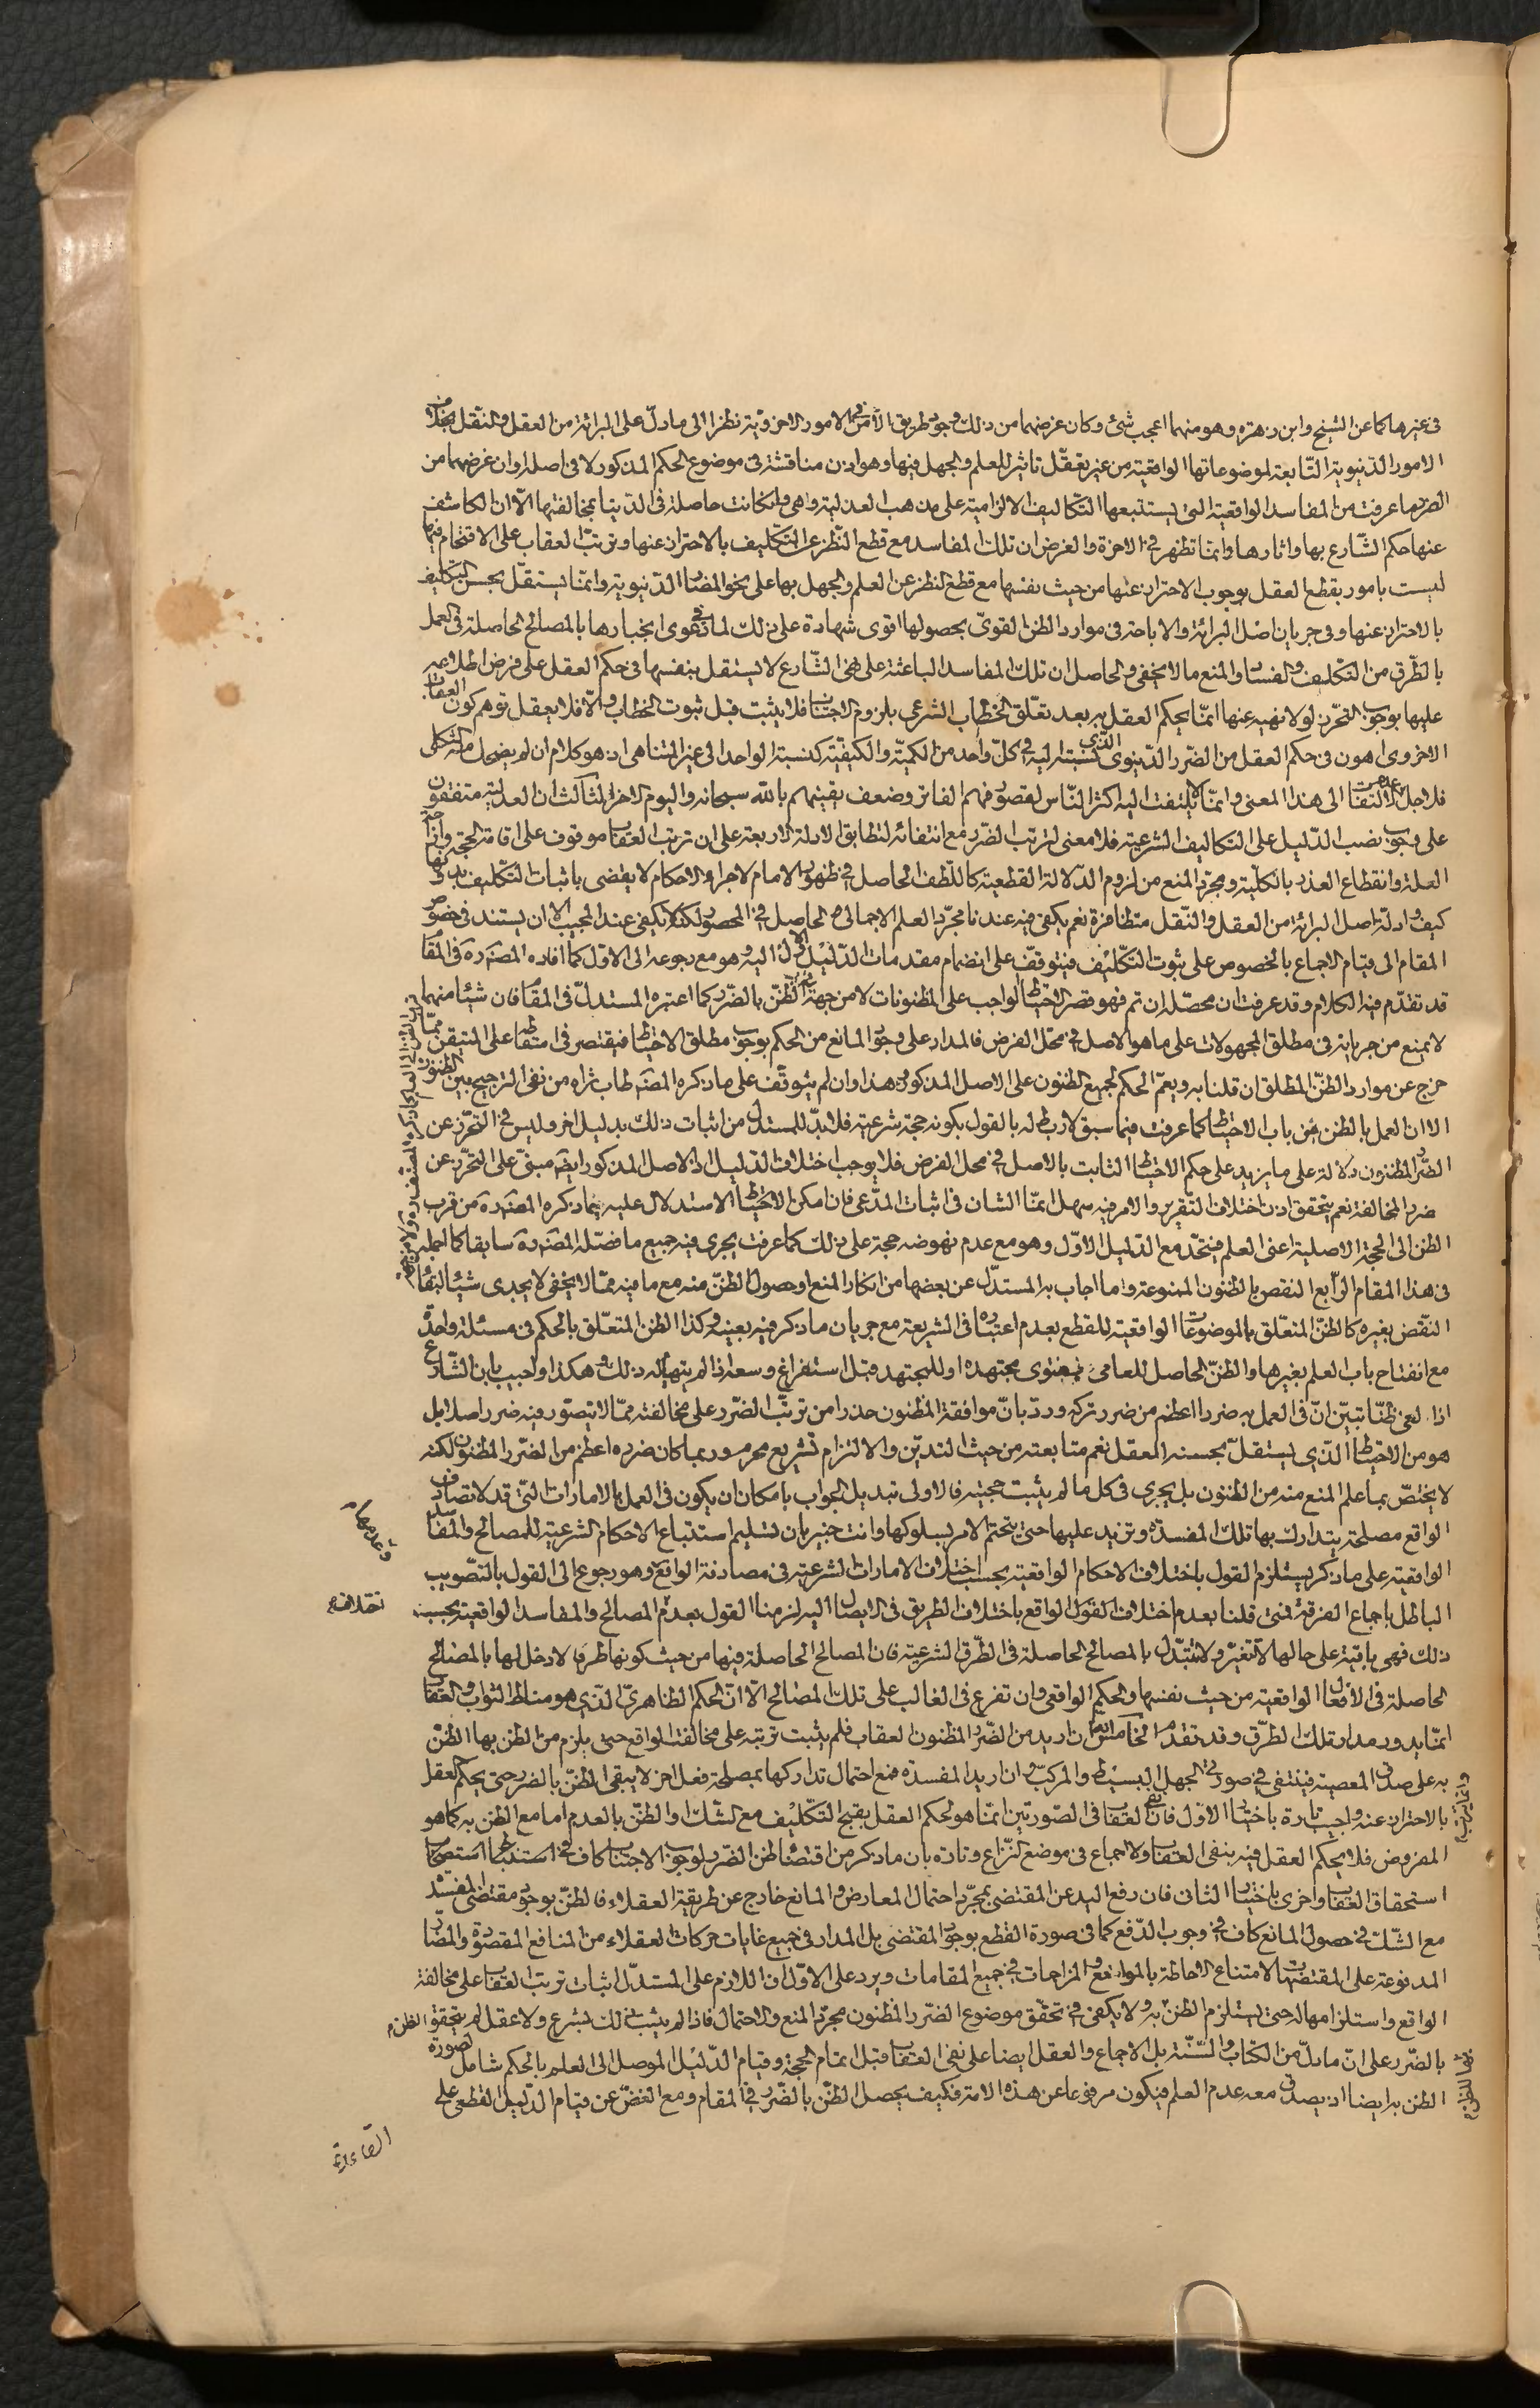 فى غيرها كما عن الشيخ وابن زهره وهو منهما اعجب شئ وكان غرضهما من ذلك وجود طريق الأمن فى الامور الاخرويّة نظرا الى ما دلّ على البرائة من العقل والنقل بخلاف
الامور الدّنيوية التّابعة لموضوعاتها الواقعية من غير تعقّل تاثير للعلم والجهل فيها وهو اذن مناقشة فى موضوع الحكم المذكور لا فى اصله او ان غرضهما من
الضرر ما عرفت من المفاسد الواقعية التى يستتبعها التّكاليف الالزامية على مذهب العدلية وهى وان كانت حاصلة فى الدّنيا بمخالفتها الّا ان الكاشف
عنها حكم الشّارع بها واثارها وانما تظهر فى الاخرة والغرض ان تلك المفاسد مع قطع النّظر عن التّكليف بالاحتراز عنها وترتّب العقاب على الاقتحام فيها
ليست بامور يقطع العقل بوجوب الاحتراز عنها من حيث نفسها مع قطع النظر عن العلم والجهل بها على نحو المضارّ الدّنيوية وانّما يستقلّ بحسن التّكليف
بالاحتراز عنها وفى جريان اصل البرائة والاباحة فى موارد الظنّ القوىّ بحصولها اقوى شهادة على ذلك لما فى دعوى انجبارها بالمصالح الحاصلة فى العمل
بالطّرق من التّكليف والفساد والمنع ما لا يخفى والحاصل ان تلك المفاسد الباعثة على نهى الشّارع لا يستقل بنفسها فى حكم العقل على فرض اطلاعه
عليها بوجوب التحّرز لولا نهيه عنها انمّا يحكم العقل به بعد تعّلق الخطاب الشرعى بلزوم الاجتناب فلا يثبت قبل ثبوت الخطاب والّا فلا يعقل توهم كون العقاب
الاخروى اهون فى حكم العقل من الضّرر الدّنيوى الّذى نسبته اليه فى كلّ واحد من الكميّة والكيفيّة كنسبة الواحد الى غير المتناهى اذ هو كلام ان لم يضحك منه الثكلى
فلاجل عدم التفات الى هذا المعنى وانمّا لا يلتفت اليه اكثر النّاس لقصور فهمهم الفاتر وضعف يقينهم بالله سبحانه واليوم الاخر الثالث ان العدلية متفقون
على وجوب نصب الدّليل على التكاليف الشرعية فلا معنى لترتب الضّرر مع انتفائه لتطابق الادلة الاربعة على ان ترتب العقاب موقوف على اقامة الحجة وازاحة
العلة وانقطاع العذر بالكليّة ومجرّد المنع من لزوم الدّلالة القطعية كاللّطف الحاصل فى ظهور الامام لاجراء الاحكام لا يقضى باثبات التّكليف بدونها
كيف وادلّة اصل البرائة من العقل والنّقل متظافرة نعم يكفى فيه عندنا مجرّد العلم الاجمالى الحاصل فى المحصور لكنّه لا يكفى عند المجيب الا ان يستند فى خصوص
المقام الى قيام الاجماع بالخصوص على ثبوت التّكليف فيتوقّف على انضمام مقدمات الدّليل الاوّل اليه وهو مع رجوعه الى الاوّل كما افاده المصنّف ره فى المقام
قد تقدّم فيه الكلام وقد عرفت ان محصّله ان تم فهو قصر الاحتياط الواجب على المظنونات لا من جهة الظنّ بالضّرر كما اعتبره المستدلّ فى المقام فان شيئا منهما
لا يمنع من جريانه فى مطلق المجهولات على ما هو الاصل فى محّل الفرض فالمدار على وجود المانع من الحكم بوجوب مطلق الاحتياط فيقتصر فى اسقاطه على المتيقن ممّا
خرج عن موارد الظنّ المطلق ان قلنا به ويعمّ الحكم لجميع الظنون على الاصل المذكور هذا وان لم يتوقّف على ما ذكره المصنّف طاب ثراه من نفى الترجيح بين الظنون
الا ان العمل بالظن من باب الاحتياط كما عرفت فيما سبق لا ربط له بالقول بكونه حجة شرعية فلا بدّ للمستدل من اثبات ذلك بدليل اخر وليس فى التحرّز عن
الضّرر المظنون دلالة على ما يزيد على حكم الاحتياط الثابت بالاصل فى محل الفرض فلا يوجب اختلاف الدّليل اذ الاصل المذكور ايضا مبنىّ على التحرّز عن
ضرر المخالفة نعم يتحقق اذن اختلاف التّقرير والامر فيه سهل انمّا الشان فى اثبات المدّعى فان امكن الاحتياط الاستدلال عليه بما ذكره المصنّف ره من قرب
الظن الى الحجة الاصلية اعنى العلم فيتحّد مع الدّليل الاوّل وهو مع عدم نهوضه حجة على ذلك كما عرفت يجرى فيه جميع ما فصّله المصنّف ره سابقا
فى هذا المقام الرّابع النقض بالظنون الممنوعة واما اجاب به المستدّل عن بعضها من انكار المنع او حصول الظنّ منه مع ما فيه ممّا لا يخفى لا يجدى شيئا لبقاء
النقض بغيره كالظنّ المتعلق بالموضوعات الواقعية للقطع بعدم اعتباره فى الشريعة مع جريان ما ذكر فيه بعينه وكذا الظن المتعّلق بالحكم فى مسئلة واحدة
مع انفتاح باب العلم بغيرها والظنّ الحاصل للعامى بفتوى مجتهده او للمجتهد قبل استفراغ وسعه اذا لم يتهيأ له ذلك وهكذا واجيب بان الشّارع
اذا الغى ظنّا تبيّن انّ فى العمل به ضررا اعظم من ضرر تركه وردّ بانّ موافقة المظنون حذرا من ترتّب الضّرر على مخالفته ممّا لا يتصوّر فيه ضرر اصلا بل
هو من الاحتياط الذّى يستقلّ بحسنه العقل نعم متابعته من حيث التديّن والالتزام تشريع محرم وربما كان ضرره اعظم من الضّرر المظنون لكنه
لا يختصّ بما علم المنع منه من الظنون بل يجرى فى كل ما لم يثبت حجيته فالاولى تبديل الجواب بامكان ان يكون فى العمل بالامارات التى قد لا تصادف
الواقع مصلحة يتدارك بها تلك المفسدة وتزيد عليها حتى يتحتم الامر بسلوكها وانت خبير بان تسليم استتباع الاحكام الشرعية للمصالح والمفاسد
الواقعية على ما ذكر يستلزم القول باختلاف الاحكام الواقعية بحسب اختلاف الامارات الشرعية فى مصادفة الواقع وهو رجوع الى القول بالتّصويب
الباطل باجماع الفرقة فمتى قلنا بعدم اختلاف الواقع باختلاف الطريق فى الايصال اليه لزمنا القول بعدم المصالح والمفاسد الواقعية بحسب
ذلك فهى باقية على حالها لا تتغيّر ولا تتبّدل بالمصالح الحاصلة فى الطّرق الشرعية فان المصالح الحاصلة فيها من حيث كونها طرقا لا دخل لها بالمصالح
الحاصلة فى الأفعال الواقعية من حيث نفسها والحكم الواقعى وان تفرع فى الغالب على تلك المصالح الّا انّ الحكم الظاهرىّ الذى هو مناط الثواب والعقاب
انمّا يدور مدار تلك الطرّق وقد تقدم الخامس ان اريد من الضّرر المظنون العقاب فلم يثبت ترتبه على مخالفة الواقع حتى يلزم من الظن بها الظنّ
به على صدق المعصية فينتفى فى صورتى الجهل البسيط والمركبّ وان اريد المفسدة فمع احتمال تداركها بمصلحة فعل اخر لا يبقى الظنّ بالضرر حتى يحكم العقل
بالاحتراز عنه واجيب تارة باختيار الاوّل فان نفى العقاب فى الصّورتين انمّا هو لحكم العقل بقبح التكّليف مع الشّك او الظنّ بالعدم اما مع الظن به كما هو
المفروض فلا يحكم العقل فيه بنفى العقاب ولا اجماع فى موضع النّزاع وتارة بان ما ذكر من اقتضاء ظن الضّرر لوجوب الاجتناب كاف فى
استحقاق العقاب واخرى باختيار الثانى فان رفع اليد عن المقتضى بمجرّد احتمال المعارض والمانع خارج عن طريقة العقلاء فالظنّ بوجود مقتضى المفسدة
مع الشّك فى حصول المانع كاف فى وجوب الدّفع كما فى صورة القطع بوجود المقتضى بل المدار فى جميع غايات حركات العقلاء من المنافع المقصودة والمضارّ
المدفوعة على المقتضيات لامتناع الاحاطة بالموانع والمزاحمات فى جميع المقامات ويرد على الاوّل ان اللازم على المستدّل اثبات ترتب العقاب على مخالفة
الواقع واستلزامها له حتى يستلزم الظنّ به ولا يكفى فى تحقّق موضوع الضّرر المظنون مجرّد المنع والاحتمال فاذا لم يثبت ذلك بشرع ولا عقل لم يتحقق الظن
بالضّرر على انّ ما دلّ من الكتاب والسّنّة بل الاجماع والعقل ايضا على نفى العقاب قبل اتمام الحجة وقيام الدّليل الموصل الى العلم بالحكم شامل لصورة
الظن به ايضا اذ يصدق معه عدم العلم فيكون مرفوعا عن هذه الامة فكيف يحصل الظنّ بالضّرر فى المقام ومع الغضّ عن قيام الدّليل القطعى على
القاعدة